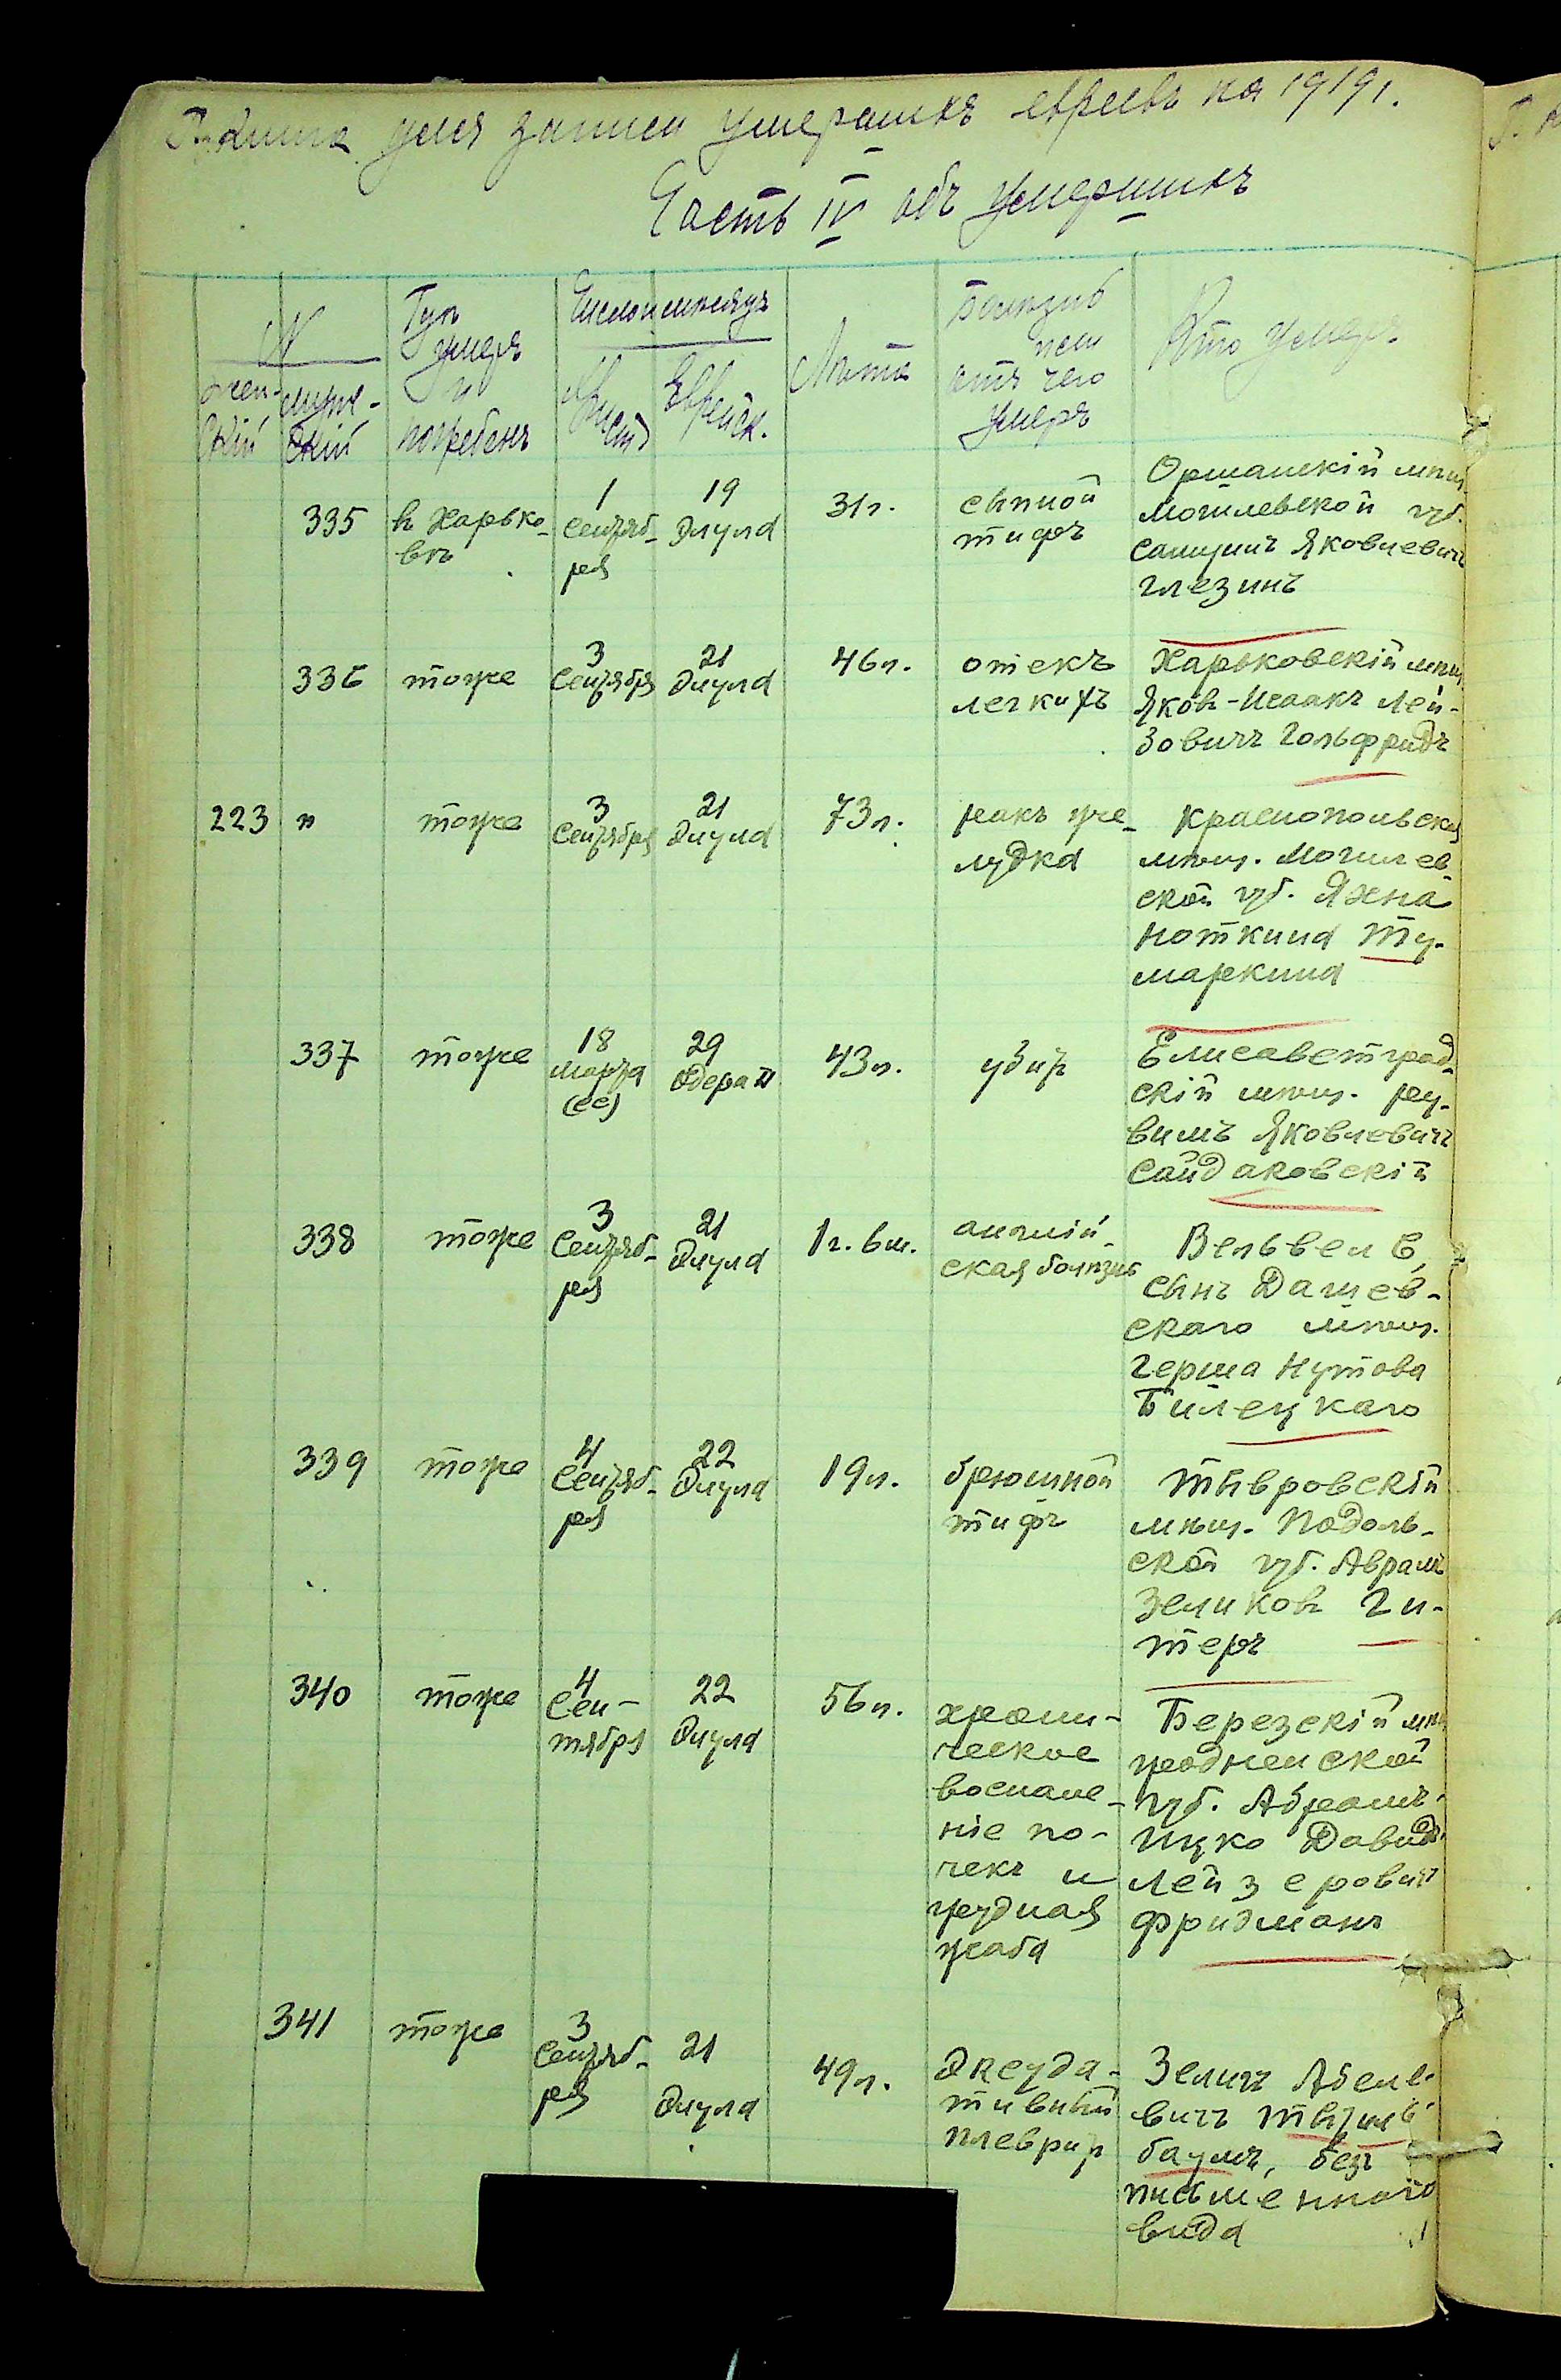 Книга для записи умершихъ евреевъ на 1919 г.
Часть IV объ умершихъ
№
жен-
скій
муж-
скій
Гдѣ
умеръ
и
погребенъ
Число и мѣсяцъ
Христ
Еврейск.
Лѣта
Болѣзнь
или
отъ чего
умеръ
Кто умеръ
335
въ Харько-
вѣ
1
Сентяб-
ря
19
Элула
31 г.
сыпной
тифъ
Оршанскій мѣщ.
Могилевской губ.
Самуилъ Яковлевичъ
Глезинъ
336
тоже
3
Сентября
21
Элула
46 л.
отекъ
легкихъ
Харьковскій мѣщ.
Яковъ-Исаакъ Лей-
зовичъ Гольфридъ
223
"
тоже
3
Сентября
21
Элула
73 л.
ракъ же-
лудка
Краснопольская
мѣщ. Могилев-
ской губ. Яхна
Ноткина Ту-
маркина
337
тоже
18
Марта
(сс)
29
Адера II
43 л.
убитъ
Елисаветград-
скій мѣщ. Реу-
вимъ Яковлевичъ
Сайдаковскій
338
тоже
3
Сентяб-
ря
21
Элула
1 г. 6 м.
англій-
ская болѣзнь
Вельвель,
сынъ Дашев-
скаго мѣщ.
Герша Нутова
Билецкаго
339
тоже
4
Сентяб-
ря
22
Элула
19 л.
брюшной
тифъ
Тывровскій
мѣщ. Подоль-
ской губ. Аврамъ
Зеликовъ Ги-
теръ
340
тоже
4
Сен-
тября
22
Элула
56 л.
хрони-
ческое
воспале-
ніе по-
чекъ и
грудная
жаба
Березскій мѣщ
гродненской
губ. Абрамъ-
Ицко Давидъ
Лейзеровичъ
Фридманъ
341
тоже
3
Сентяб-
ря
21
Элула
49 л.
Эксуда-
тивный
плевритъ
Зеликъ Абеле-
вичъ
баумъ, безъ
письменнаго
вида